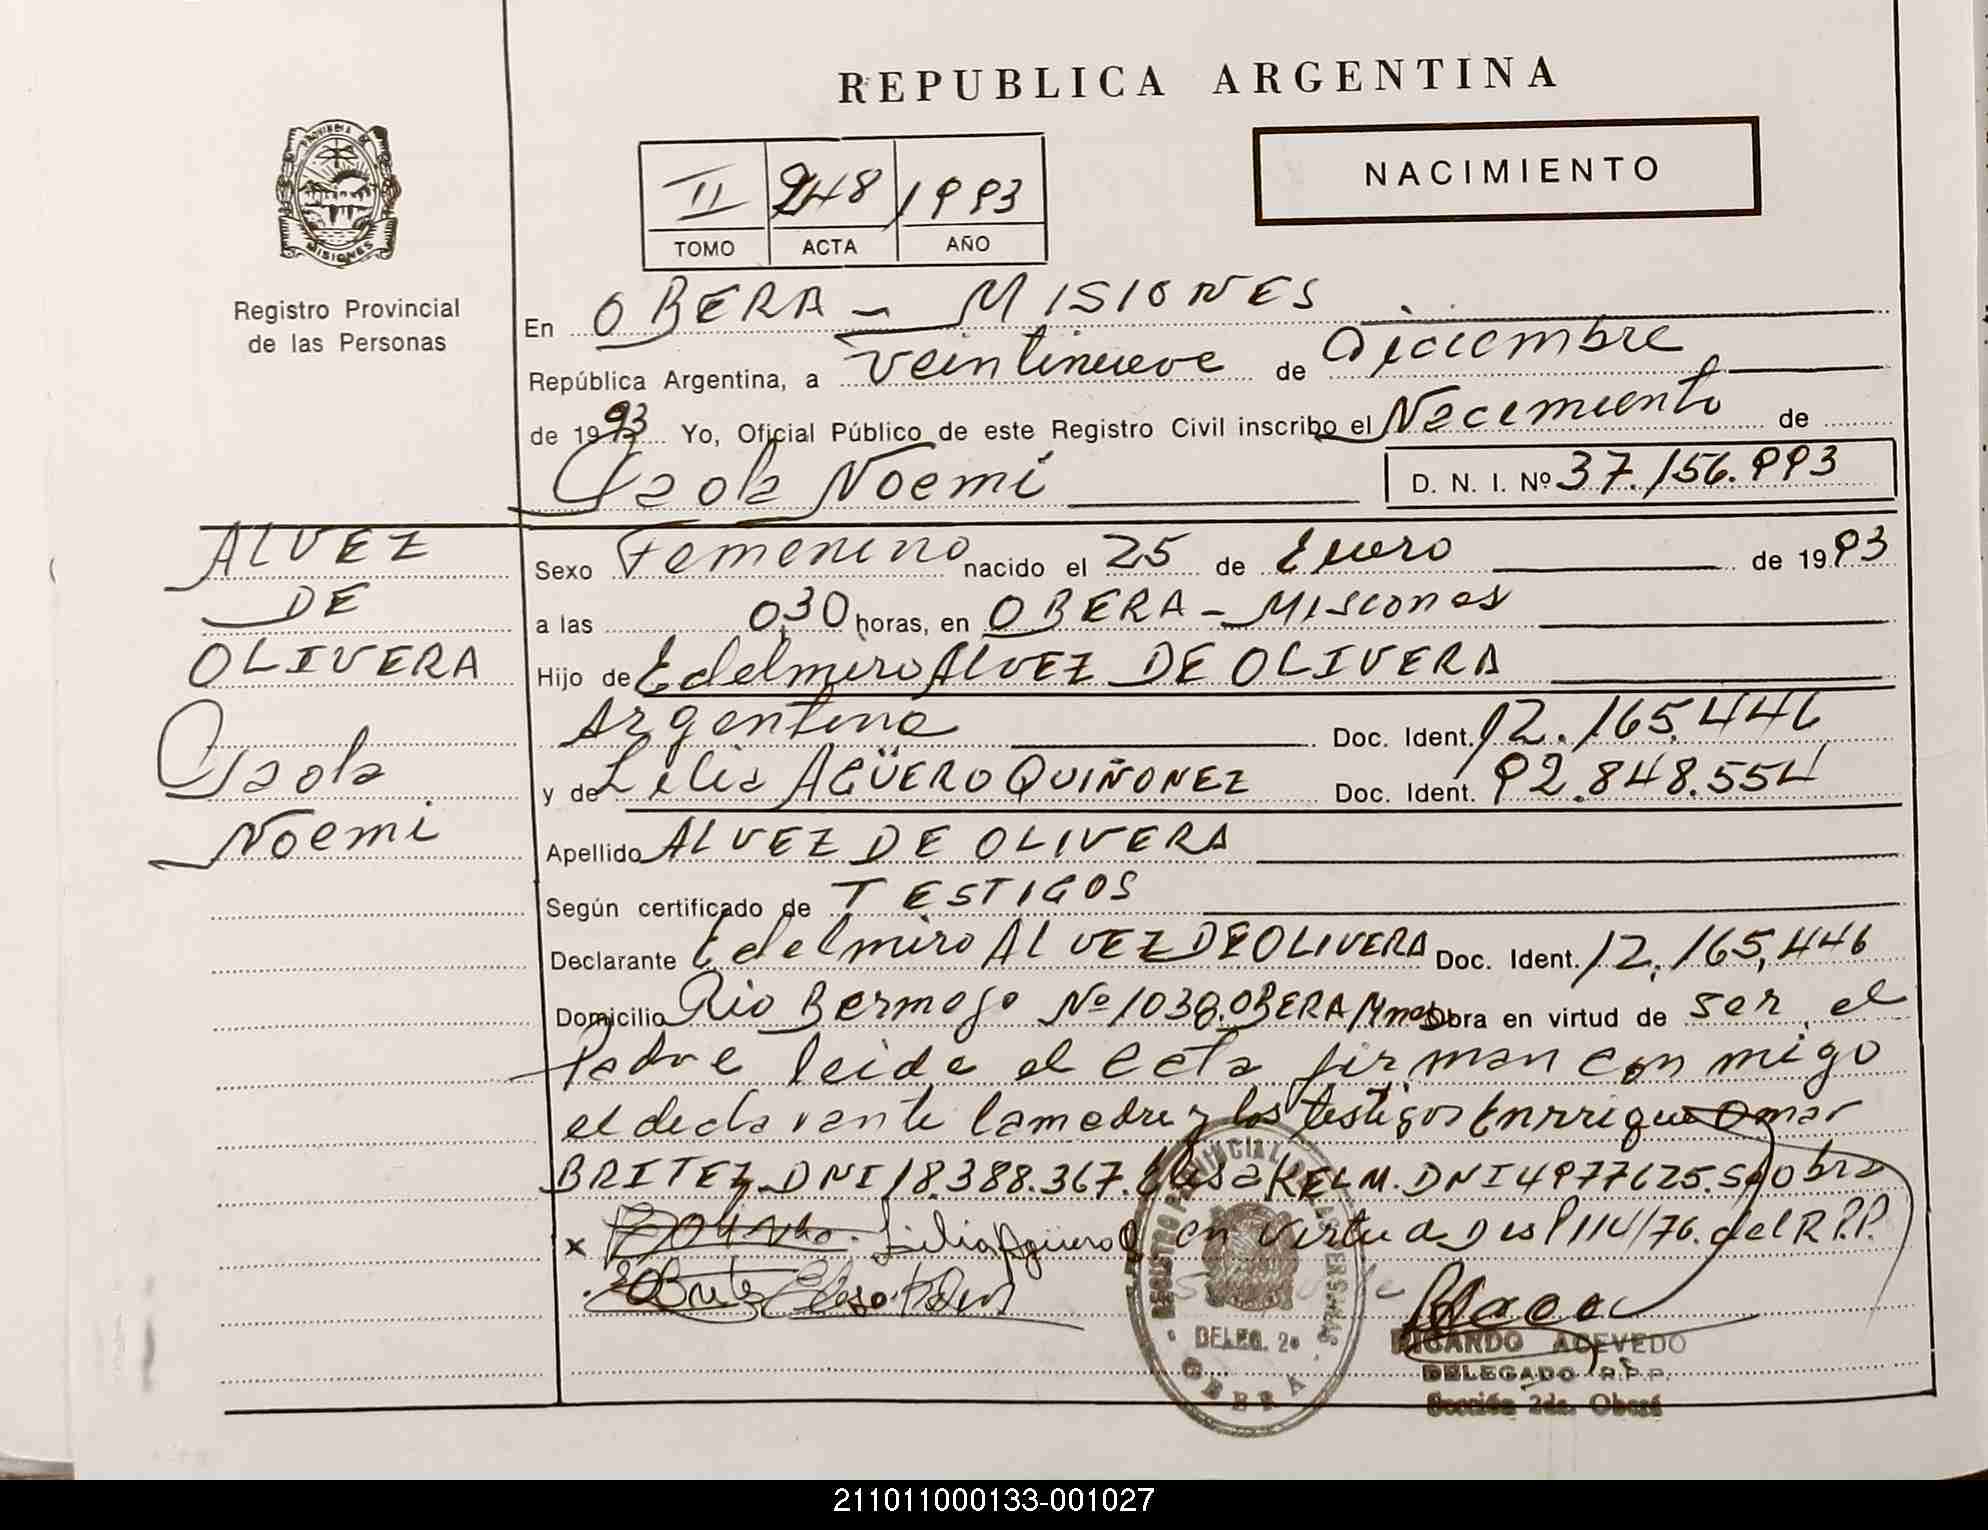 REPUBLICA ARGENTINA
NACIMIENTO
II 248 1993
TOMO ACTA AÑO
PROVINCIA DE
MISIONES
Registro Provincial
de las Personas
En OBERA - MISIONES
República Argentina, a veintinueve de Diciembre
de 1993 Yo, Oficial Público de este Registro Civil inscribo el Nacimiento de
Paola Noemi D. N. I. Nº 37.156.993
ALVEZ
DE
OLIVERA
Paola
Noemi
Sexo Femenino nacido el 25 de Enero de 1993
a las 0,30 horas, en OBERA - Misiones
Hijo de Edelmiro ALVEZ DE OLIVERA
Argentina Doc. Ident. 12.165.446
y de Lilia AGÜERO QUIÑONEZ Doc. Ident. 92.848.554
Apellido ALVEZ DE OLIVERA
Según certificado de TESTIGOS
Declarante Edelmiro ALVEZ DE OLIVERA Doc. Ident. 12.165.446
Domicilio Rio Bermejo Nº 1038. OBERA Mnes Obra en virtud de ser el
Padre leida el acta firman con migo
el declarante la madre y los testigos Enrrique Omar
BRITEZ DNI 18.388.367. Elsa KELM. DNI 4977625. Se obra
x Lilia Agüero Q en virtud Disp 114/76. del R.P.P.
REGISTRO PROVINCIAL DE LAS PERSONAS
DELEG. 2a
OBERA
RICARDO ACEVEDO
DELEGADO R.P.P.
Sección 2da. Oberá
211011000133-001027